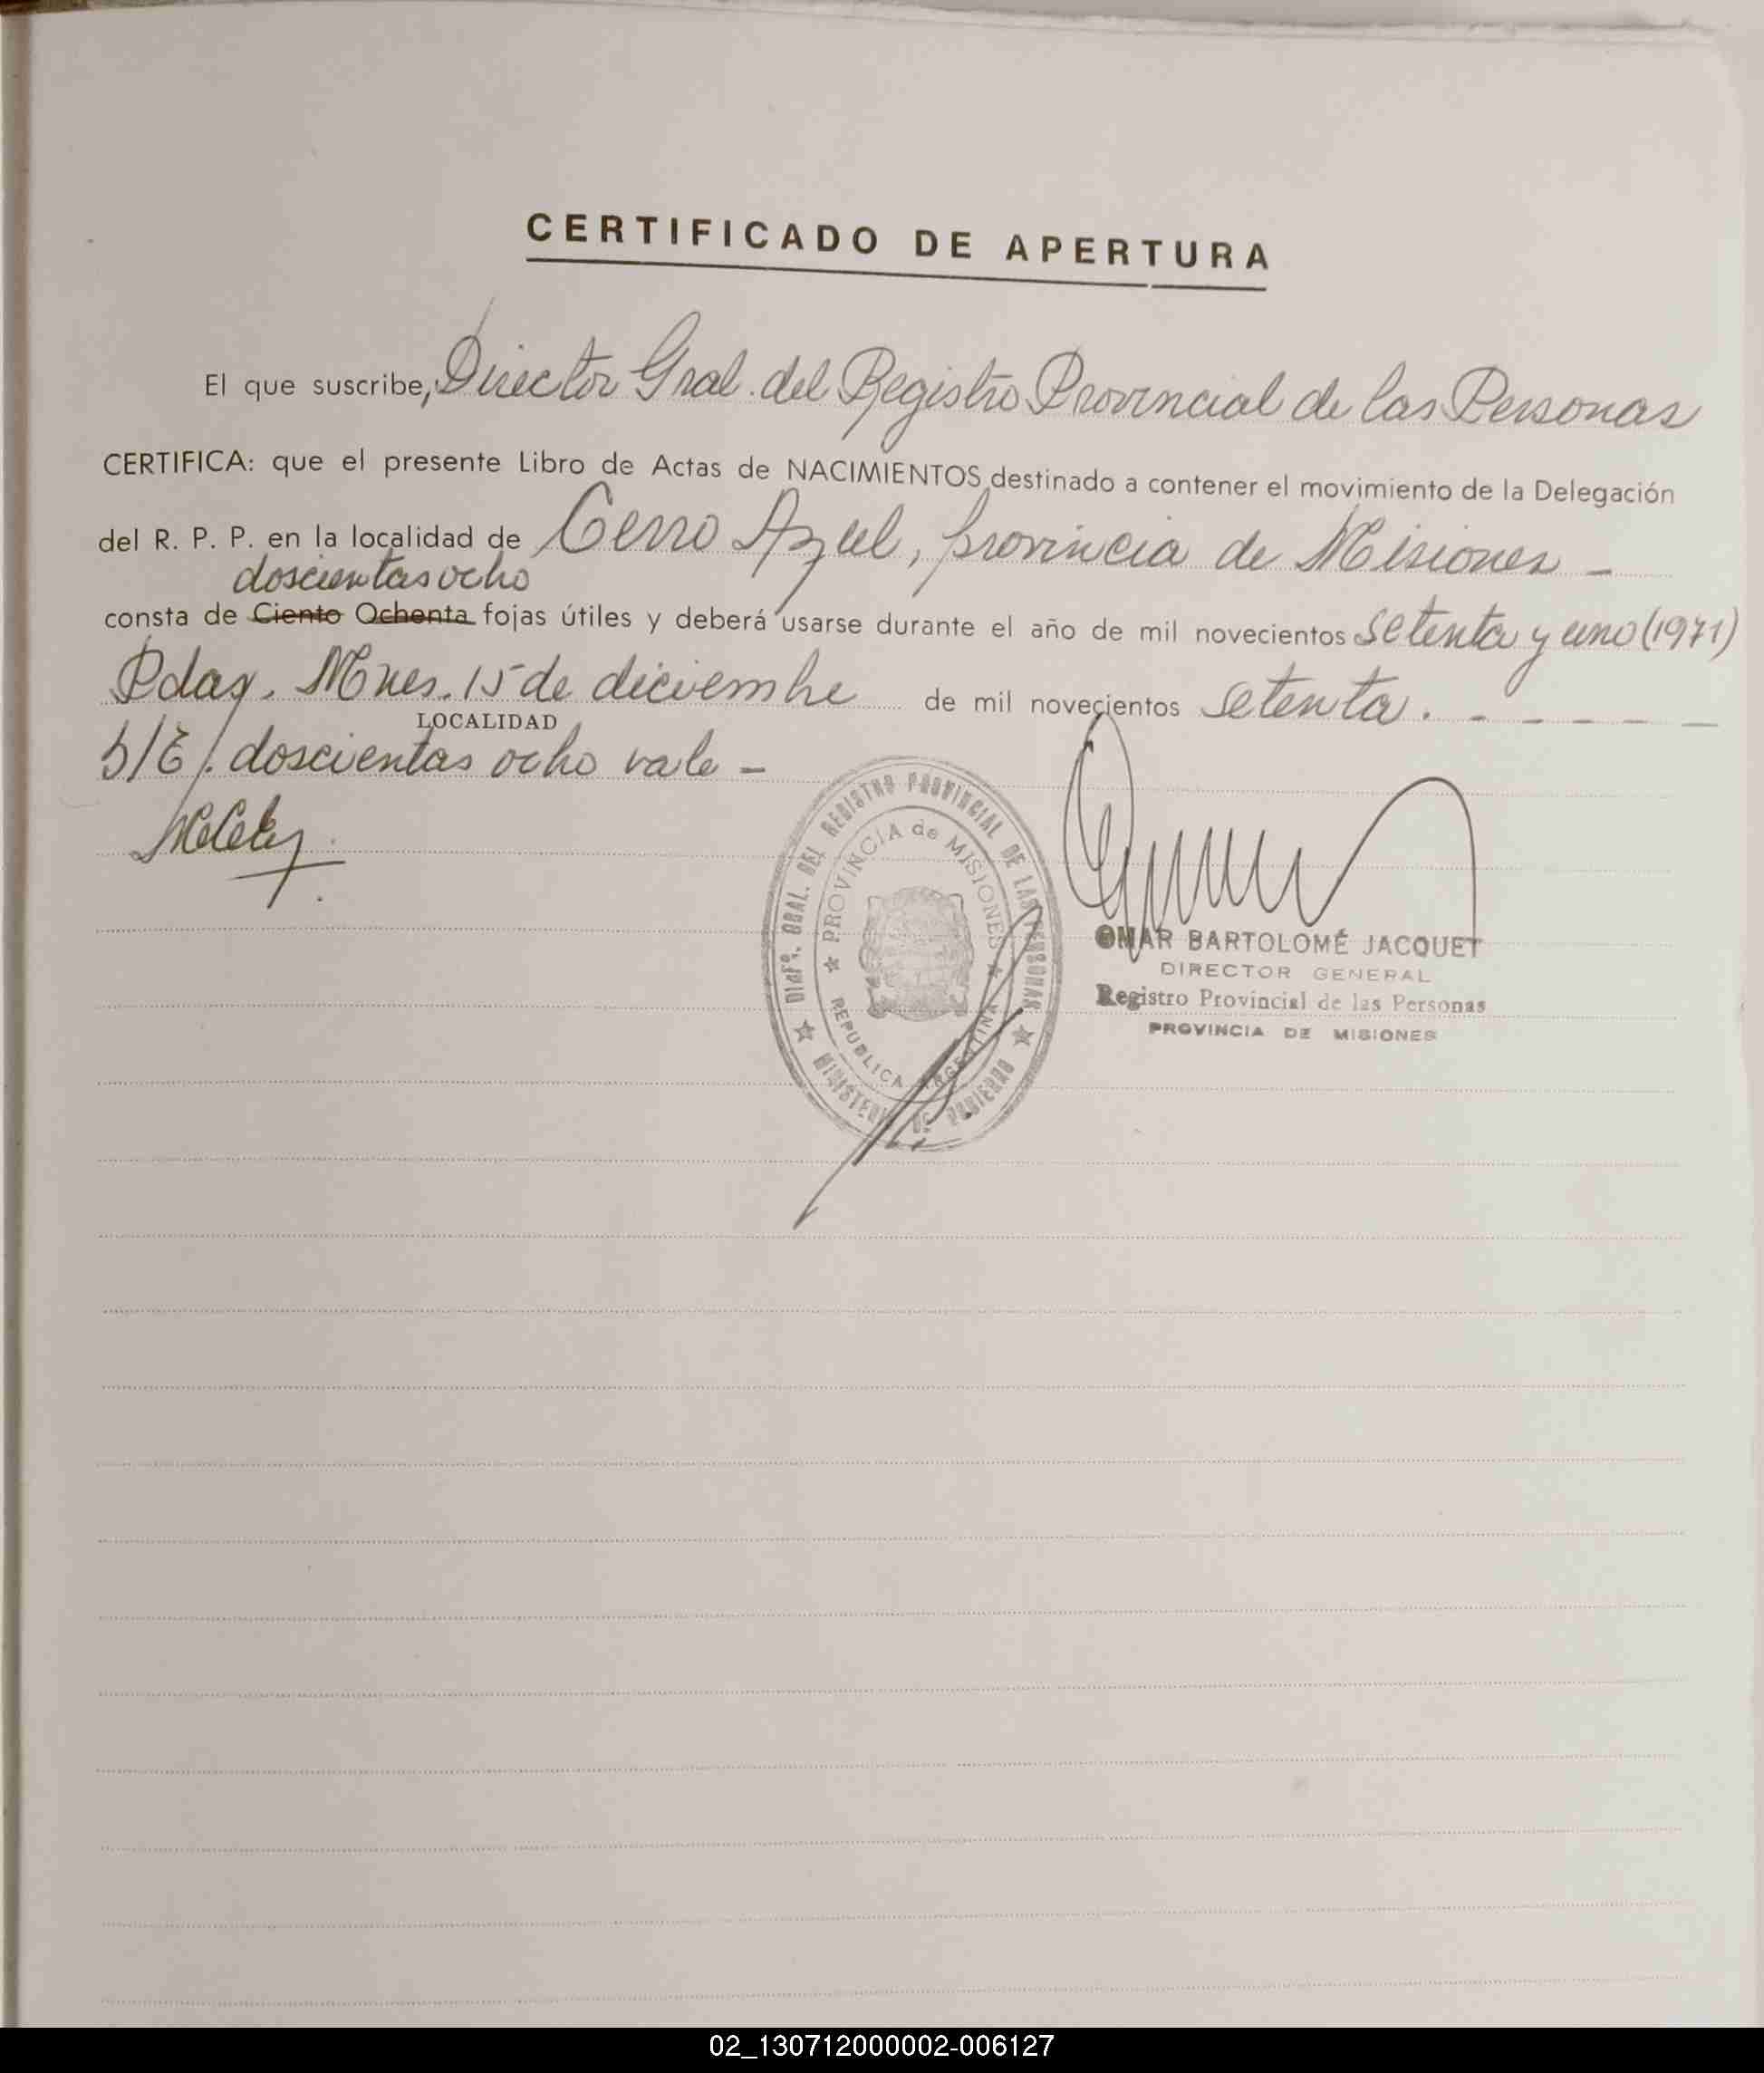 CERTIFICADO DE APERTURA
El que suscribe, Director Gral. del Registro Provincial de las Personas
CERTIFICA: que el presente Libro de Actas de NACIMIENTOS destinado a contener el movimiento de la Delegación
del R. P. P. en la localidad de Cerro Azul, provincia de Misiones -
doscientas ocho
consta de Ciento Ochenta fojas útiles y deberá usarse durante el año de mil novecientos setenta y uno (1971)
Pdas. Mnes. 15 de diciembre de mil novecientos setenta. - - - - -
LOCALIDAD
S/E/. doscientas ocho vale -
DIREC. GRAL. DEL REGISTRO PROVINCIAL DE LAS PERSONAS
PROVINCIA de MISIONES
REPUBLICA ARGENTINA
MINISTERIO DE GOBIERNO
OMAR BARTOLOMÉ JACQUET
DIRECTOR GENERAL
Registro Provincial de las Personas
PROVINCIA DE MISIONES
02_130712000002-006127